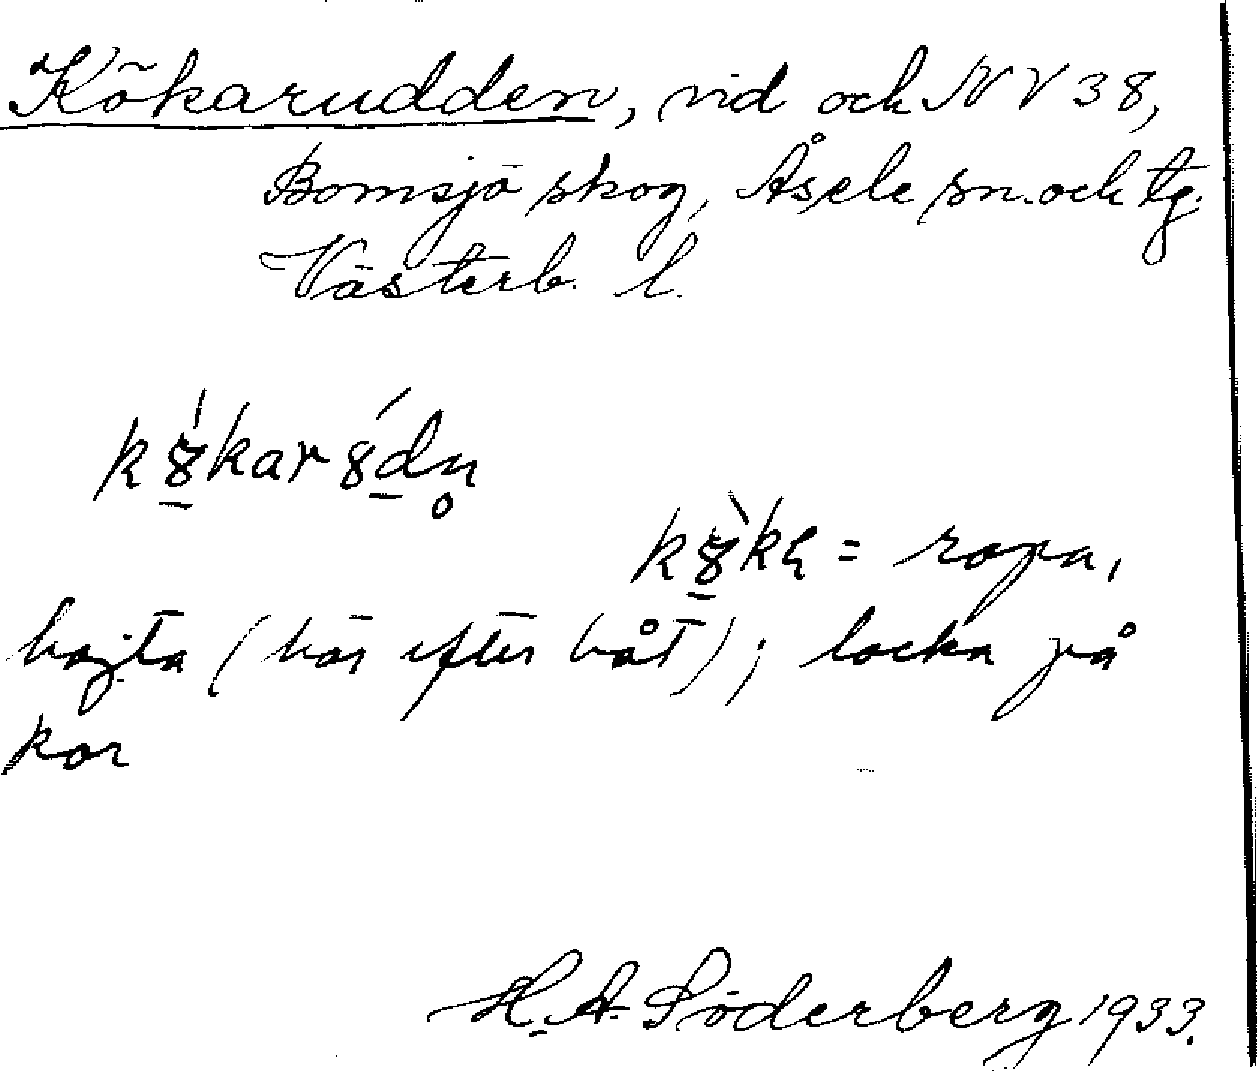 Kökarudden, vid och NV 38,
Bomsjö skog, Åsele sn. och tg.
Västerb. l.
ropa,
hojta (här efter båt); locka på
kor
H. A. Söderberg 1933.